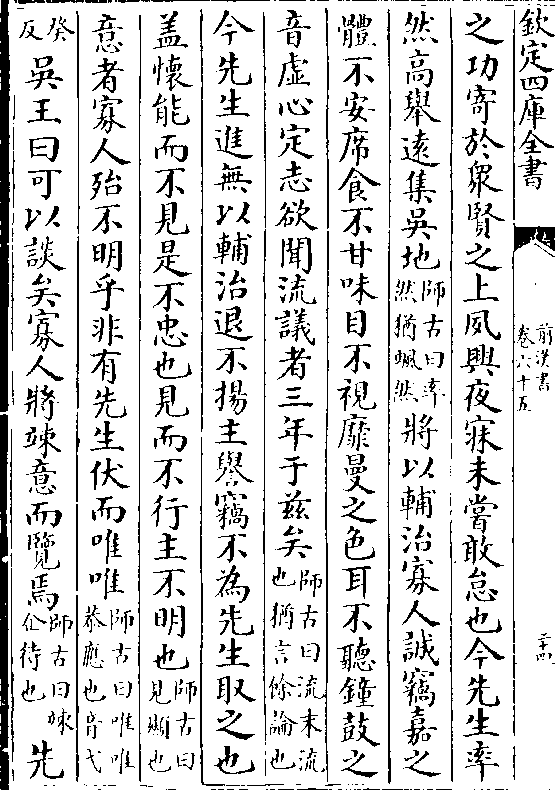 欽定四庫全書
前漢書
卷六十五
二十四
之功寄於衆賢之上夙興夜寐未嘗敢怠也今先生率
然高舉遠集吳地師古曰率然猶飄然將以輔治寡人誠竊嘉之
體不安席食不甘味目不視靡曼之色耳不聽鐘鼓之
音虛心定志欲聞流議者三年于兹矣師古曰流末流也猶言餘論也
今先生進無以輔治退不揚主譽竊不為先生取之也
盖懷能而不見是不忠也見而不行主不明也師古曰見顯也
意者寡人殆不明乎非有先生伏而唯唯師古曰唯唯恭應也音弋
癸反吳王曰可以談矣寡人將竦意而覽焉師古曰竦企待也先